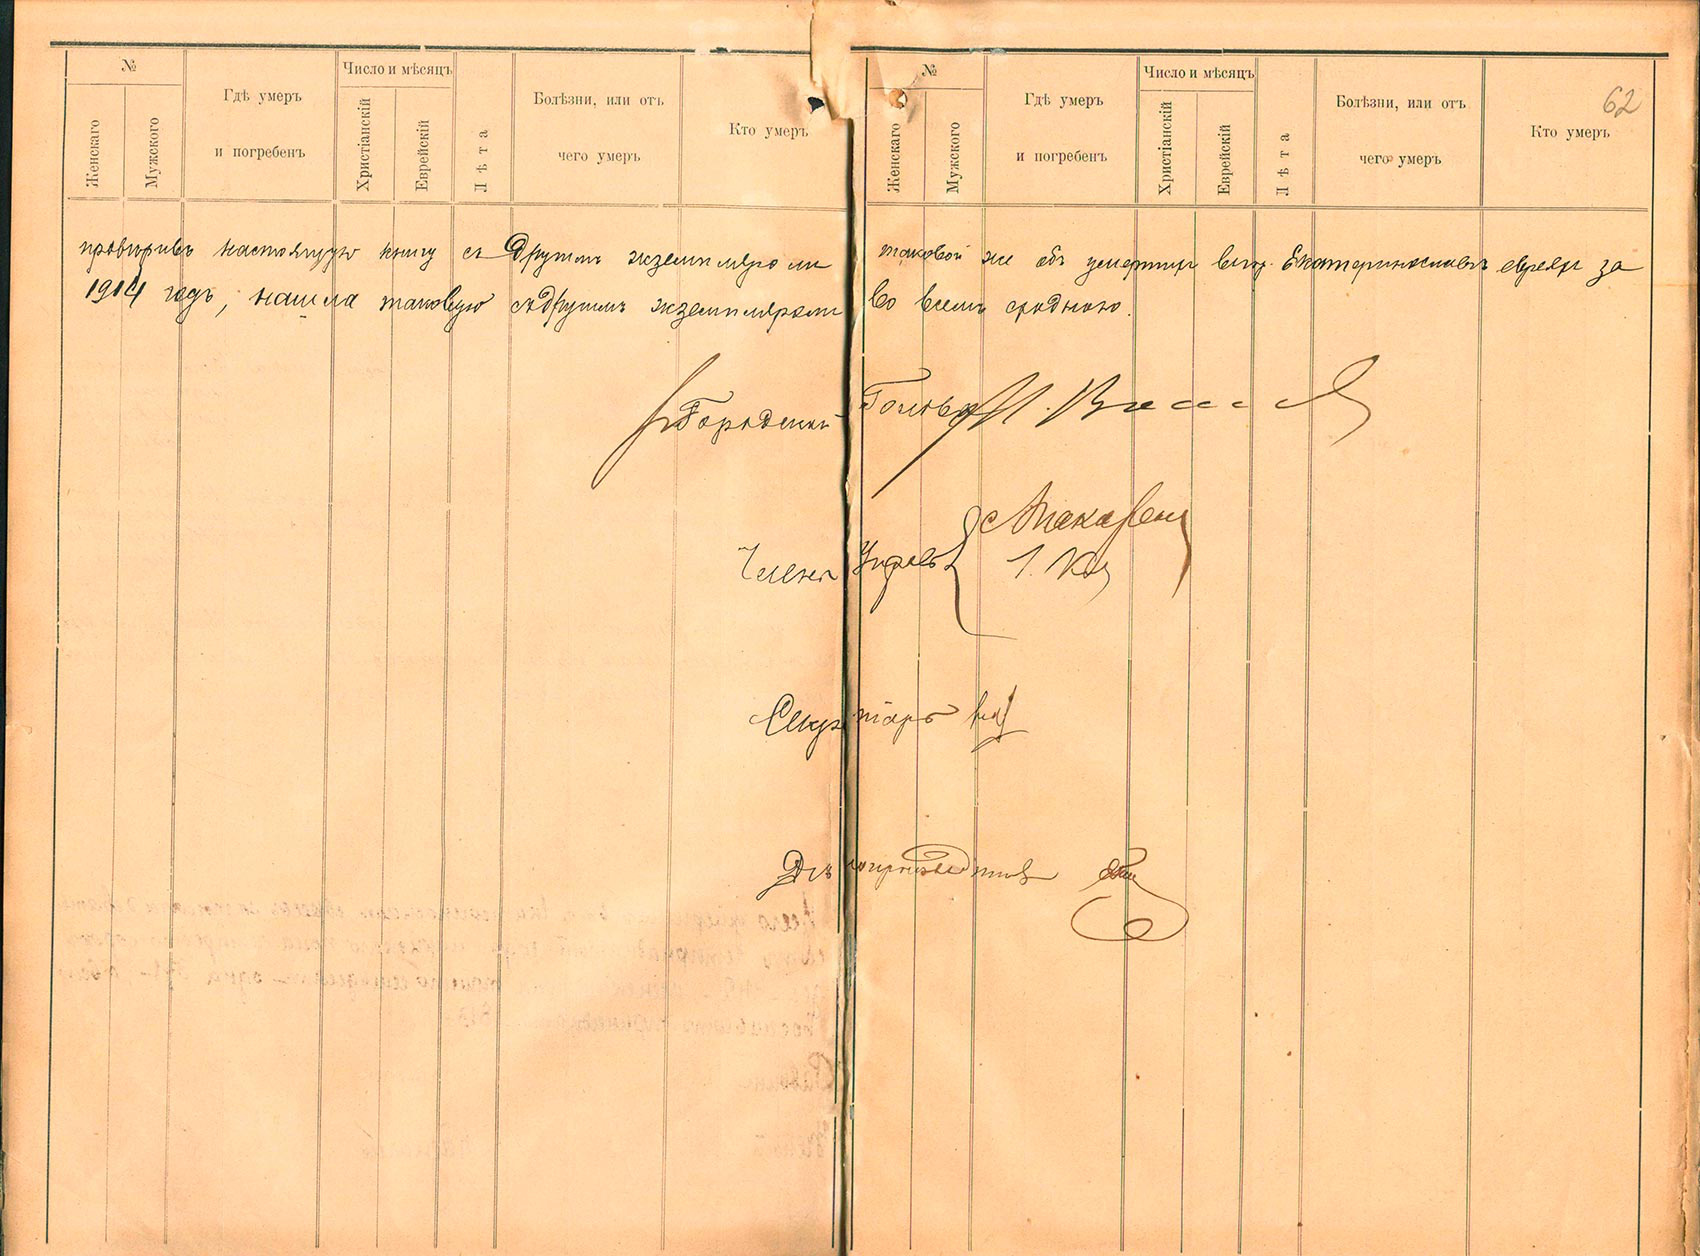 №
Гдѣ умеръ и погребенъ
Число и мѣсяцъ
Болѣзни, или отъ чего умеръ
Кто умеръ
Женскаго
Мужского
Христіанскій
Еврейскій
Лѣта
№
Гдѣ умеръ и погребенъ
Число и мѣсяцъ
Болѣзни, или отъ чего умеръ
Кто умеръ
62
Женскаго
Мужского
Христіанскій
Еврейскій
Лѣта
провѣривъ настоящую книгу съ другимъ экземпляромъ таковой же объ умершихъ въ гор. Екатеринославѣ евреяхъ за
1914 годъ, нашла таковую съ другимъ экземпляромъ во всемъ сходною.
Городской Голова
Члены Управы
Секретарь
Дѣлопроизводитель